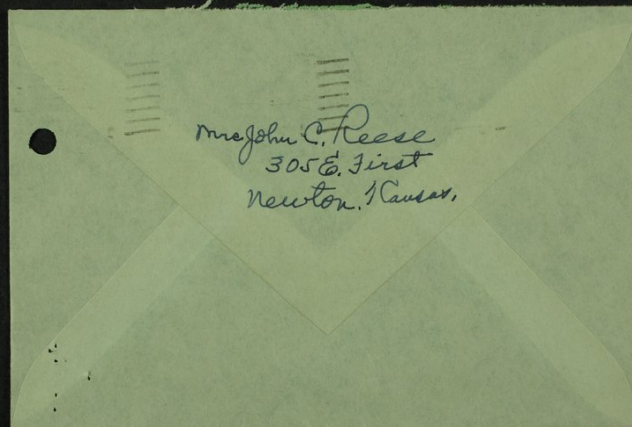 Mrs John C. Reese
305 E. First
Newton, Kansas.